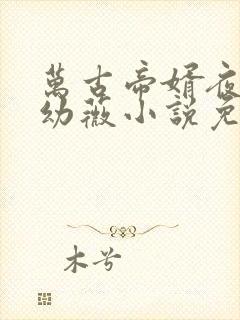 萬古帝婿夜
幼薇小說免
木兮